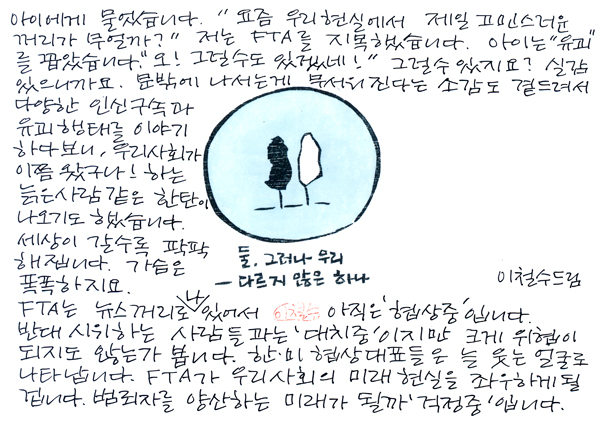 아이에게 물었습니다. "요즘 우리현실에서 제일 고민스러운
꺼리가 무얼까?" 저는 FTA를 지목했습니다. 아이는 "유괴"
를 꼽았습니다. "오! 그럴수도 있겠네!" 그럴수 있지요? 실감
있으니까요. 문밖에 나서는게 무서워진다는 소감도 곁드려서
다양한 인신구속과
유괴행태를 이야기
하다보니, 우리사회가
이쯤 왔구나! 하는
늙은사람같은 한탄이
나오기도했습니다.
세상이 갈수록 팍팍
해집니다. 가슴은
폭폭하지요.
둘, 그러나 우리
— 다르지 않은 하나
이철수드림
FTA는 뉴스꺼리로나 있어서 아직은 '협상중'입니다.
반대 시위하는 사람들과는 '대치중'이지만 크게 위협이
되지도 않는가 봅니다. 한·미 협상대표들은 늘 웃는 얼굴로
나타납니다. FTA가 우리사회의 미래현실을 좌우하게될
겁니다. 범죄자를 양산하는 미래가 될까 '걱정중'입니다.